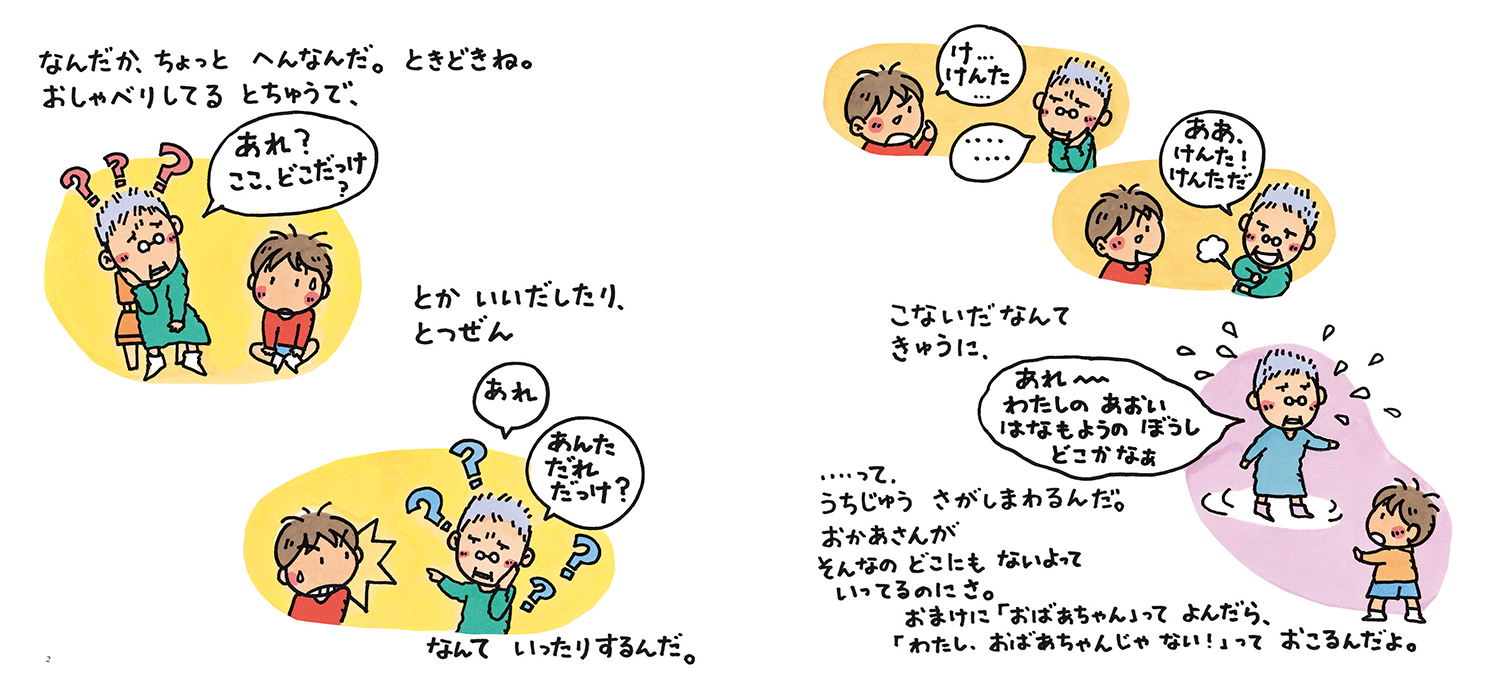 なんだか、ちょっと へんなんだ。ときどきね。
おしゃべりしてる とちゅうで、
あれ?
ここ、どこだっけ
?
? ? ?
とか いいだしたり、
とつぜん
あれ
あんた
だれ
だっけ?
? ? ? ?
なんて いったりするんだ。
2
け…
けんた
…
‥‥
‥‥
ああ、
けんた!
けんただ
こないだなんて
きゅうに、
あれ〜
わたしの あおい
はなもようの ぼうし
どこかなぁ
‥‥って、
うちじゅう さがしまわるんだ。
おかあさんが
そんなの どこにも ないよって
いってるのにさ。
おまけに「おばあちゃん」って よんだら、
「わたし、おばあちゃんじゃ ない!」って おこるんだよ。